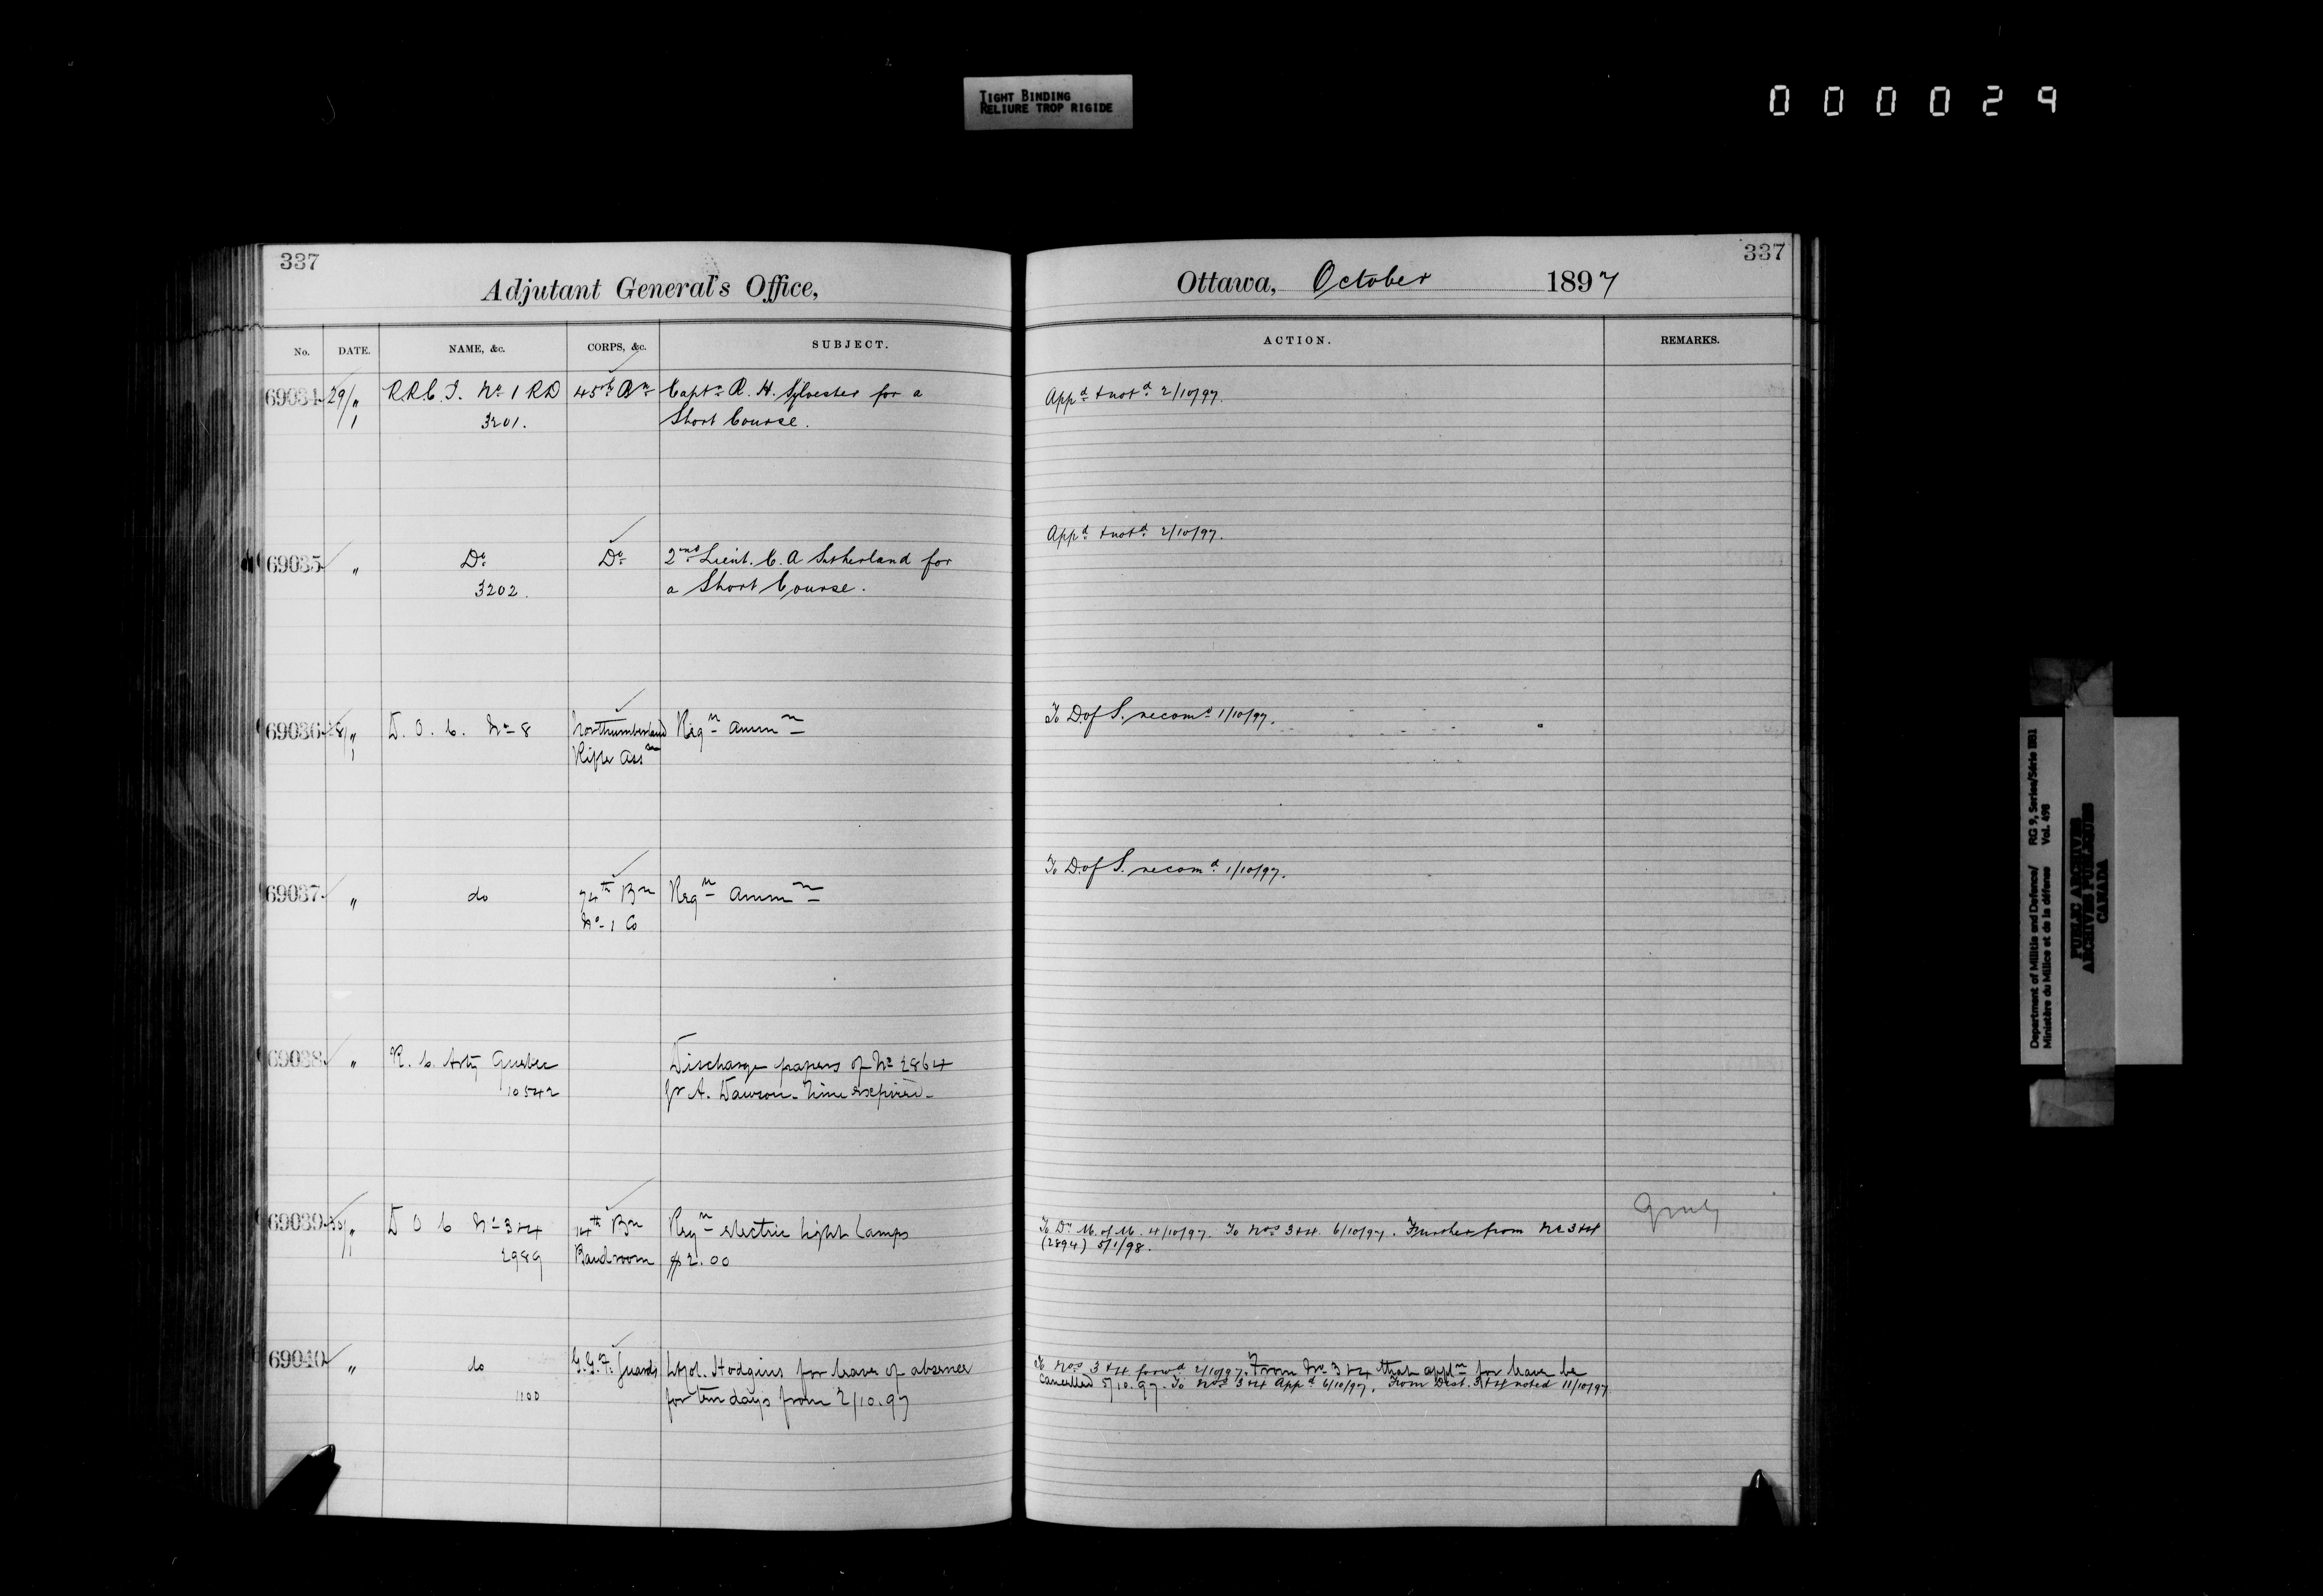 TIGHT BINDING
RELIURE TROP RIGIDE
000029
337
Adjutant General's Office,
No. DATE. NAME, &c. CORPS, &c. SUBJECT.
69034 29/" R.R.C.I. No 1 RD 45th Bn Captn R. H. Sylvester for a
3201. Short Course.
69035 " Do Do 2nd Lieut. C. A Sutherland for
3202. a Short Course.
69036 28/" D. O. C. No 8 Northumberland Reqn Ammn
Rifle Assn
69037 " do 74th Bn Reqn Ammn
No 1 Co
69038 " R. C. Arty Quebec Discharge papers of No 2864
10542 Gr A. Dawson - time expired -
69039 30/" D O C No 3+4 14th Bn Reqn electric light lamps
2989 Bandroom $2.00
69040 " do G.G.F. Guards Lt Col. Hodgins for leave of absence
1100 for ten days from 2/10.97
337
Ottawa, October 1897
ACTION. REMARKS.
Appd + notd 2/10/97.
Appd + notd 2/10/97.
To D of S. recomd 1/10/97.
To D of S. recomd 1/10/97.
To Dr M. of M. 4/10/97. To Nos 3+4. 6/10/97. Further from No 3+4
(2894) 5/1/98.
To Nos 3+4 forwd 2/10/97. From No. 3+4 that appln for leave be
cancelled 5/10.97. To Nos 3+4 Appd 6/10/97. From Dist. 3+4 noted 11/10/97
Department of Militia and Defence/ RG 9, Series/Série IIB1
Ministère du Milice et de la défense Vol. 498
PUBLIC ARCHIVES
ARCHIVES PUBLIQUES
CANADA